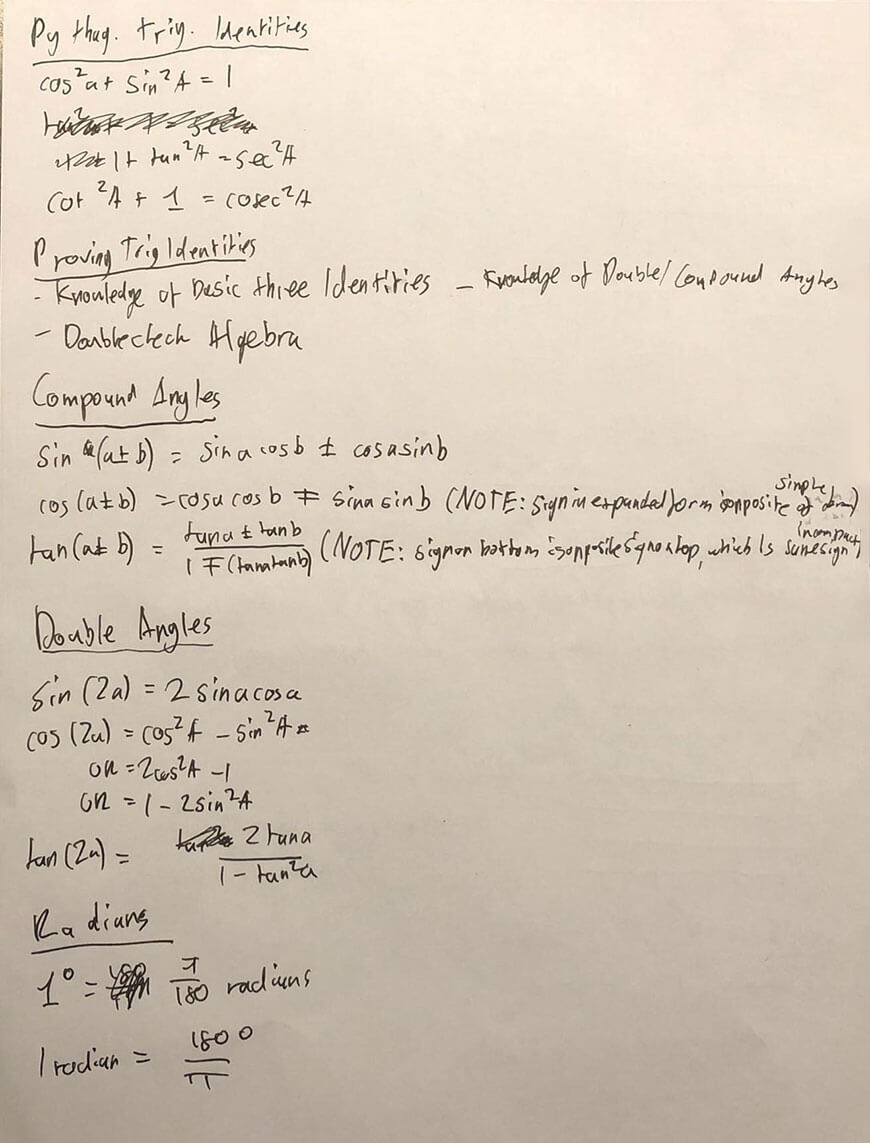 Pythag. Trig. Identities
cos²a + sin²A = 1
1 + tan²A = sec²A
cot²A + 1 = cosec²A
Proving Trig Identities
- Knowledge of Basic three Identities - Knowledge of Double/Compound Angles
- Doublecheck Algebra
Compound Angles
sin (a ± b) = sina cosb ± cosasinb
cos (a ± b) = cosa cosb ∓ sina sinb (NOTE: sign in expanded form is opposite of simple)
tan (a ± b) = tana ± tanb / 1 ∓ (tanatanb) (NOTE: sign on bottom is opposite sign on top, which is same sign in compact)
Double Angles
sin (2a) = 2 sinacosa
cos (2a) = cos²A - sin²A
OR = 2cos²A - 1
OR = 1 - 2sin²A
tan (2a) = 2 tana / 1 - tan²a
Radians
1° = π / 180 radians
1 radian = 180° / π